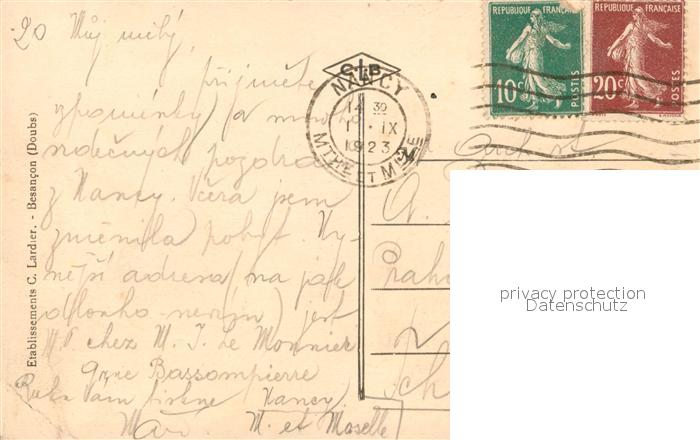 20 Můj milý,
přijměte
vzpomínky a mnoho
srdečných pozdravů
z Nancy. Včera jsem
změnila pobyt. Ny-
nější adresa, na jak
dlouho nevím) jest
chez M. J. Le Monnier
Bassompierre
Ruku Vám tiskne Nancy
M. et Moselle
Etablissements C. Lardier. - Besançon (Doubs)
C L B
NANCY
14 30
1 - IX
1923
MTHE ET MLLE
REPUBLIQUE FRANÇAISE
10c POSTES
REPUBLIQUE FRANÇAISE
20c POSTES
Praha
privacy protection
Datenschutz